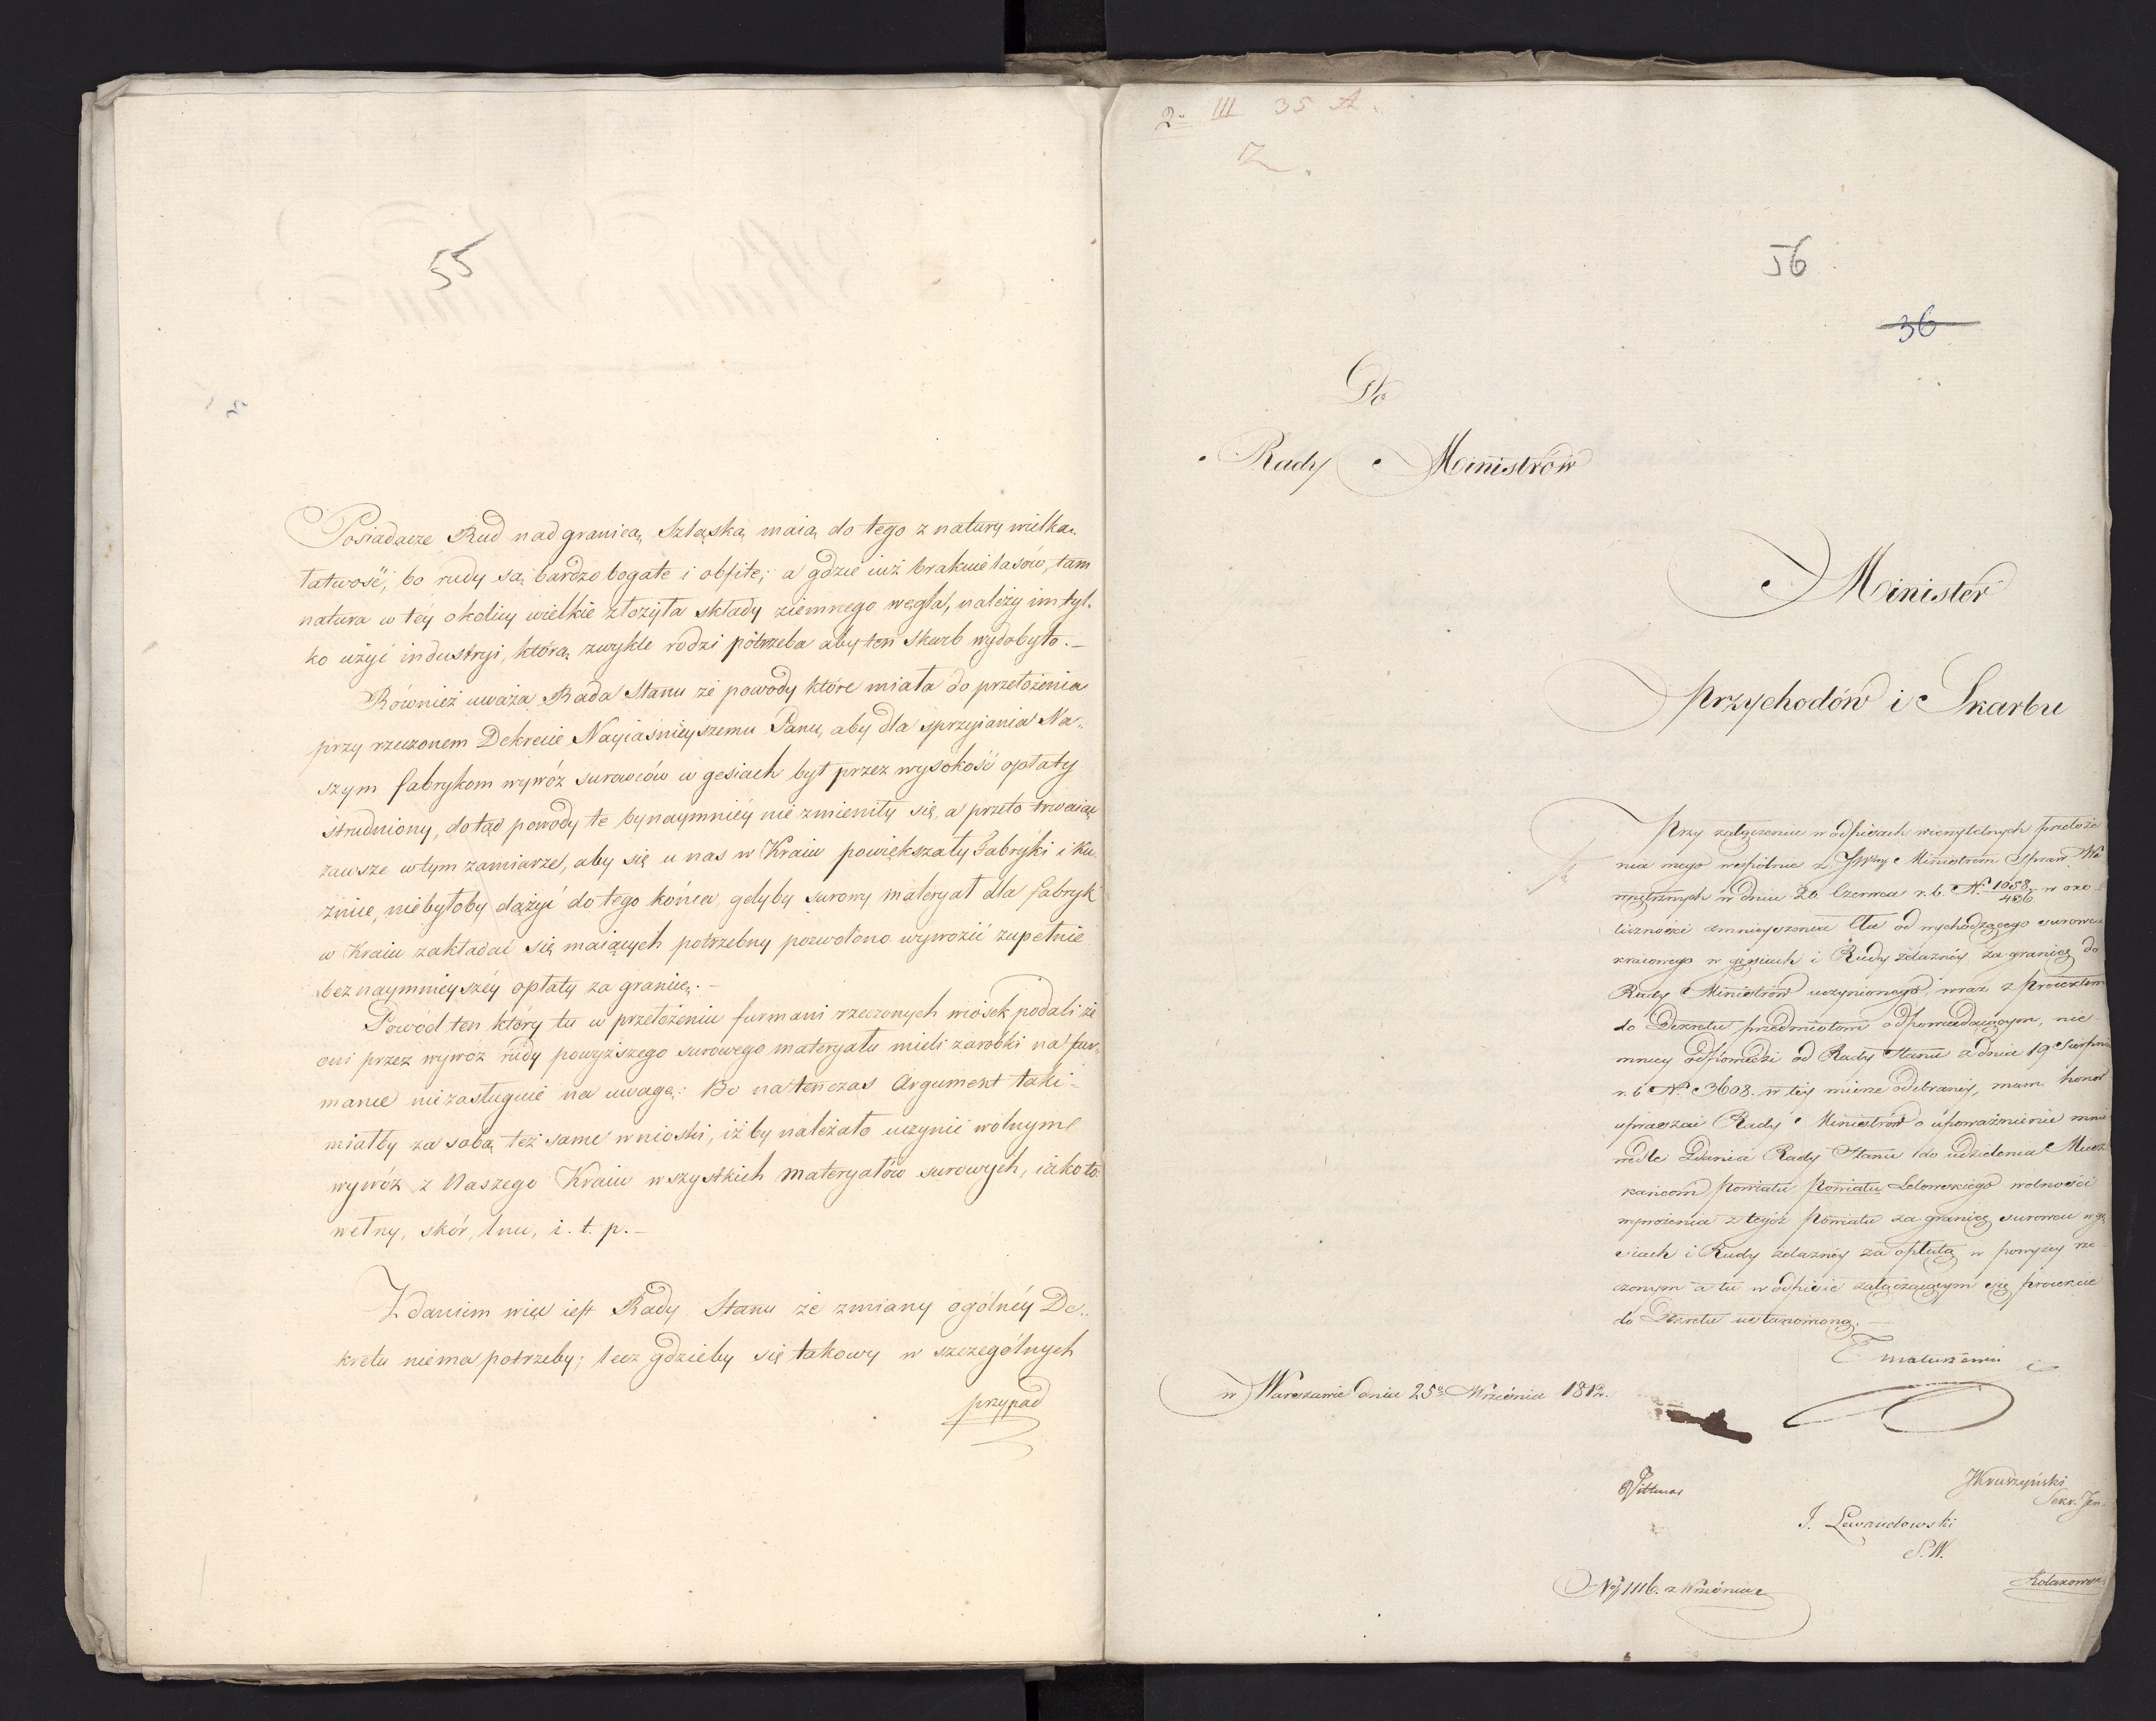 55
Posiadacze Rud nad granicą Szląską maią do tego z natury wielką
łatwość, bo rudy są bardzo bogate i obfite; a gdzie iuż brakuie lasów, tam
natura w tey okolicy wielkie złożyła składy ziemnego węgla, należy im tyl-
ko użyć industryi, którą zwykle rodzi potrzeba aby ten skarb wydobyto.—
Również uważa Rada Stanu że powody które miała do przełożenia
przy rzeczonem Dekrecie Nayiaśnieyszemu Panu, aby dla sprzyiania Na-
szym fabrykom wywóz surowców w gęsiach był przez wysokość opłaty
utrudniony, dotąd powody te bynaymniéy nie zmieniły się, a przeto trwaiąc
zawsze w tym zamiarze, aby się u nas w Kraiu powiększały Fabryki i Ku-
źnice, niebyłoby dążyć do tego końca, gdyby surowy materyał dla fabryk
w Kraiu zakładać się maiących potrzebny pozwolono wywozić zupełnie
bez naymnieyszéy opłaty za granicę.—
Powód ten który tu w przełożeniu furmani rzeczonych wiosek podali że
oni przez wywóz rudy powyższego surowego materyału mieli zarobki na fur-
mance nie zasługuie na uwagę: Bo natenczas Argument taki
miałby za sobą też same wnioski, iżby należało uczynić wolnym
wywóz z Naszego Kraiu wszystkich materyałów surowych, iako to
wełny, skór, lnu, i. t. p.—
Zdaniem więc iest Rady Stanu że zmiany ogólnéy De-
kretu niema potrzeby; lecz gdzieby się takowy w szczególnych
przypad
2o III 35 A.
2.
56
36
Do
Rady Ministrów
Minister
Przychodów i Skarbu
Przy załączeniu w odpisach wierzytelnych przełoże
nia mego wspólnie z JWnym Ministrem Spraw We
wnętrznych w dniu 26 Czerwca r. b. No 1058/436 w oko-
liczności zmnieyszenia Cła od wychodzącego surowcu
kraiowego w gęsiach i Rudy żelaznéy za granicę do
Rady Ministrów uczynionego, wraz z Proiektem
do Dekretu przedmiotowi odpowiadaiącym, nie-
mniey odpowiedzi od Rady Stanu z dnia 19 Sierpnia
r. b No 3608. w téy mierze odebranéy, mam honor
upraszać Rady Ministrów o upoważnienie mnie
wedle Zdania Rady Stanu do udzielenia Miesz
kańcom Powiatu Powiatu Lelowskiego wolności
wywożenia z tegoż Powiatu za granicę surowcu w gę
siach i Rudy żelaznéy za opłatą w powyżéy rze
czonym a tu w odpisie załączaiącym się proiekcie
do Dekretu ustanowioną.—
w Warszawie dnia 25o Września 1812.
T. Matuszewic
JKruszyński
Sekr. Jen.
J. Lewandowski
S. W.
No 1116. z Września